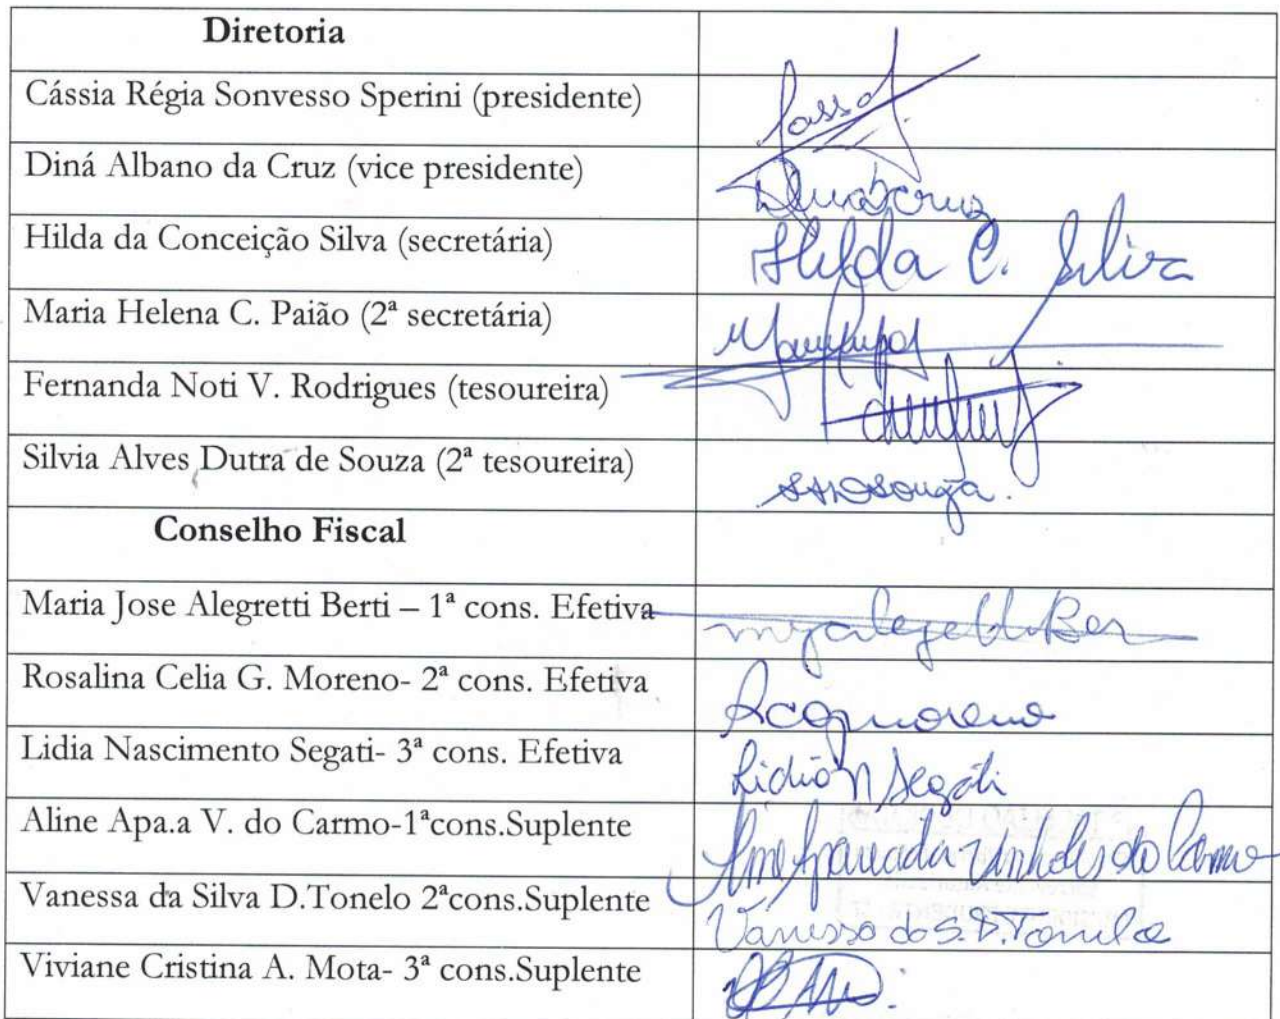 Diretoria
Cássia Régia Sonvesso Sperini (presidente)
Diná Albano da Cruz (vice presidente)
Hilda da Conceição Silva (secretária) Hilda C. Silva
Maria Helena C. Paião (2ª secretária)
Fernanda Noti V. Rodrigues (tesoureira)
Silvia Alves Dutra de Souza (2ª tesoureira) SADSouza.
Conselho Fiscal
Maria Jose Alegretti Berti – 1ª cons. Efetiva
Rosalina Celia G. Moreno- 2ª cons. Efetiva Rcgmoreno
Lidia Nascimento Segati- 3ª cons. Efetiva Lidia N Segati
Aline Apa.a V. do Carmo-1ªcons.Suplente Aline Aparecida Vinholes do Carmo
Vanessa da Silva D.Tonelo 2ªcons.Suplente Vanessa da S. D. Tonelo
Viviane Cristina A. Mota- 3ª cons.Suplente